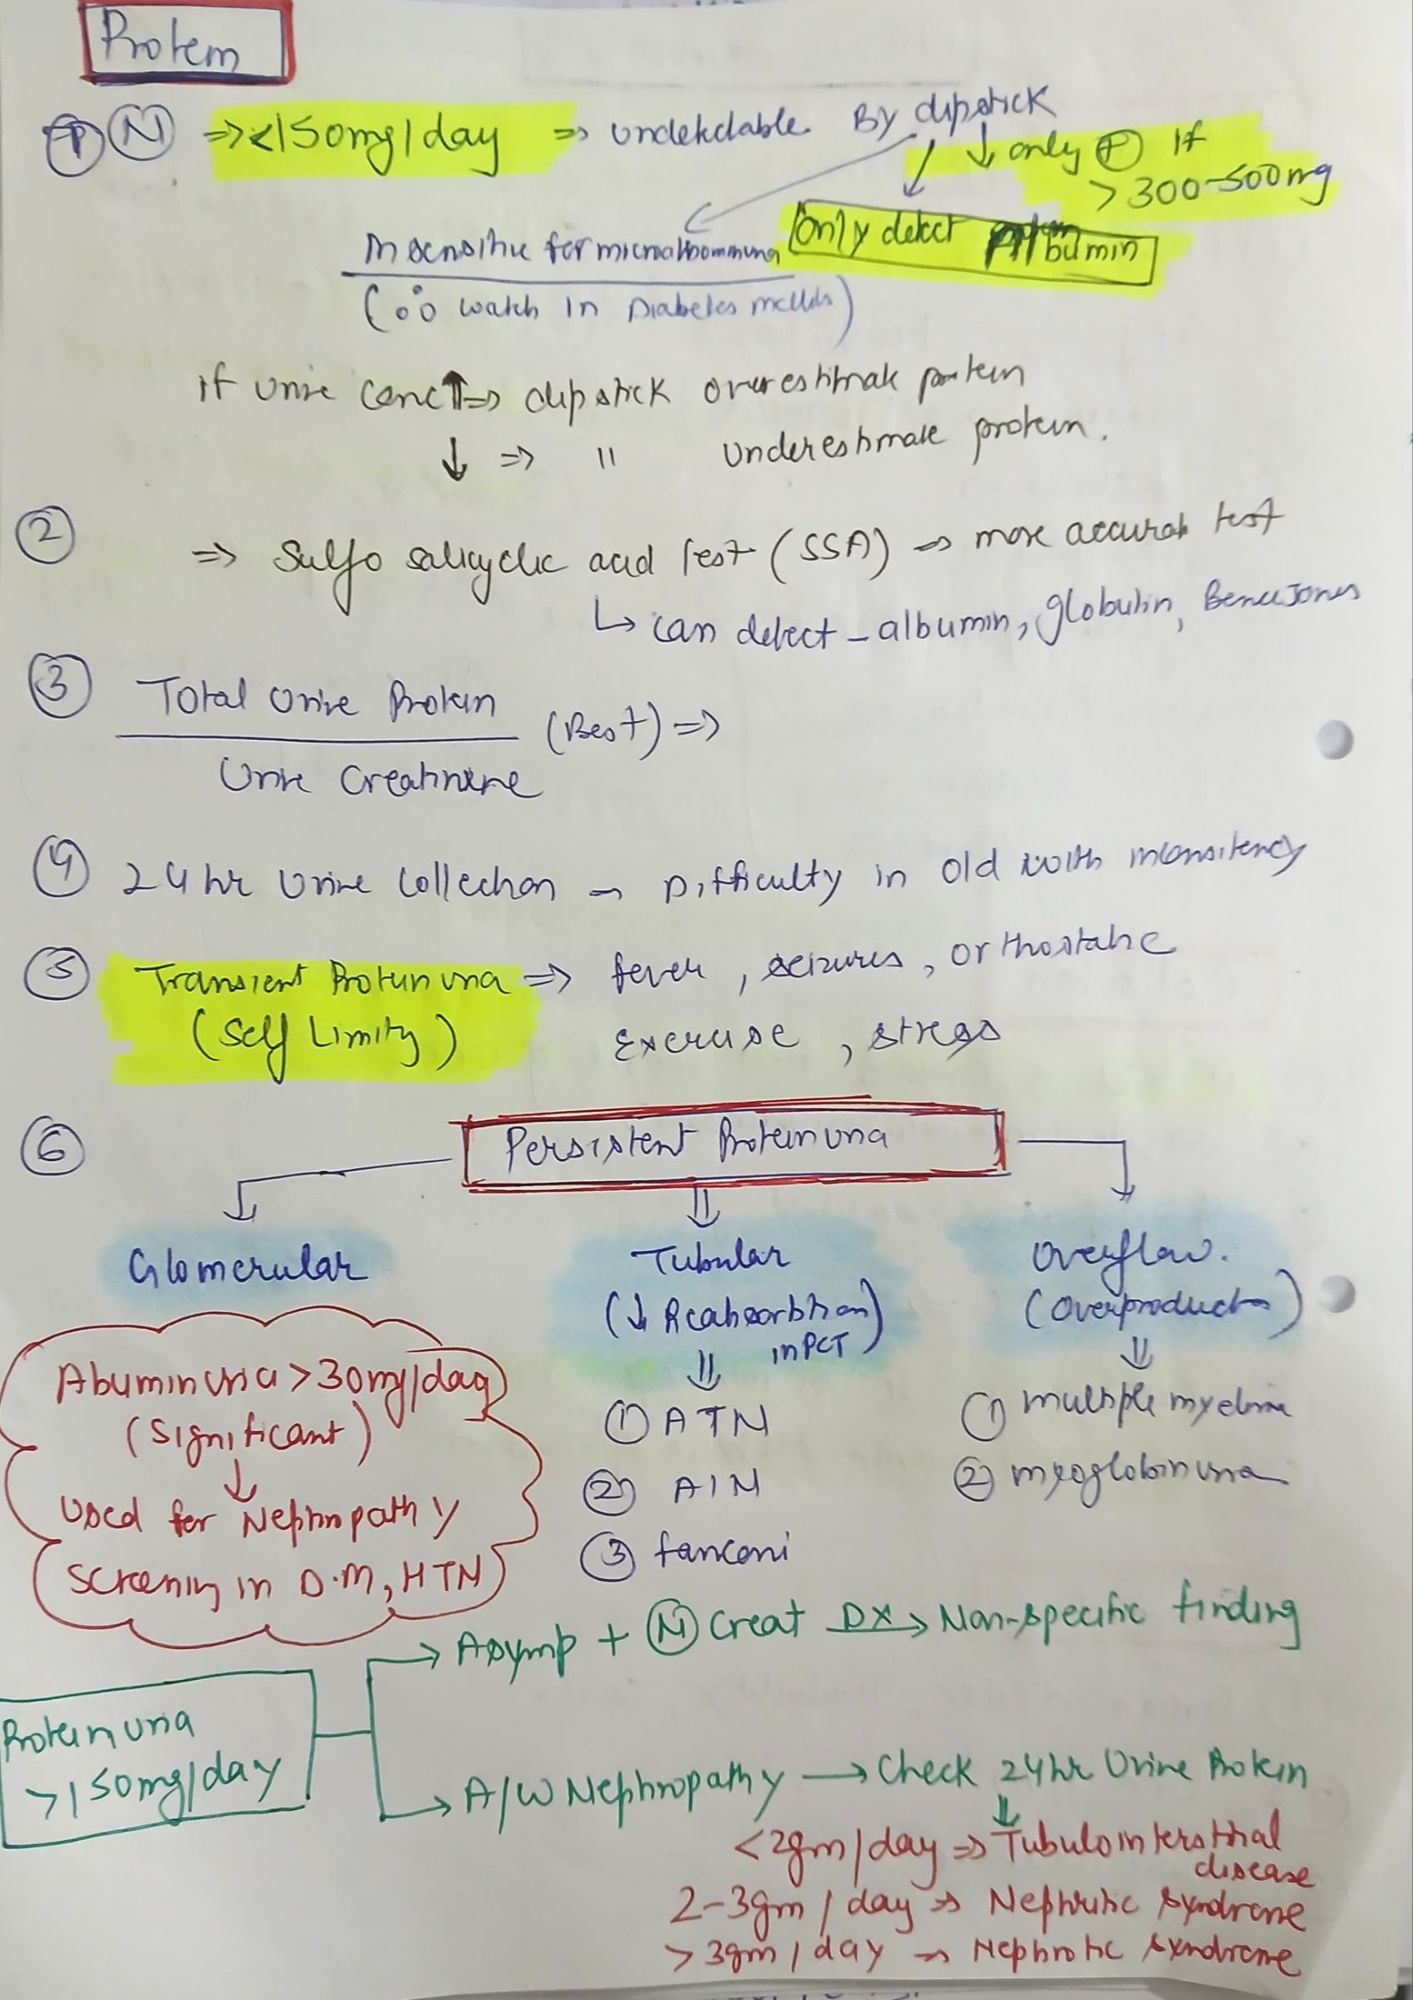 Protein
① Ⓝ ⇒ <150mg/day ⇒ undetectable By dipstick
↓ only ⊕ if
>300-500mg
Only detect Albumin
Insensitive for microalbuminuria
(∴ watch in Diabetes mellitus)
if urine conc ↑ ⇒ dipstick overestimate protein
↓ ⇒ " underestimate protein.
② ⇒ Sulfo salicyclic acid test (SSA) ⇒ more accurate test
↳ can detect - albumin, globulin, Bence Jones
③ Total Urine Protein
(Best) ⇒
Urine Creatinine
④ 24 hr Urine Collection → Difficulty in old with inconsitency
⑤ Transient Proteinuria ⇒ fever, seizures, orthostatic
(Self Limity) Exercise, stress
⑥ Persistent Proteinuria
Glomerular
Tubular
(↓ Reabsorbtion)
in PCT
⇓
① ATN
② AIN
③ fanconi
Overflow.
(Overproduction)
⇓
① multiple myeloma
② myoglobinuria
Abuminuria >30mg/day
(Significant)
↓
Used for Nephropathy
Screening in D.M, HTN
Proteinuria
>150mg/day
→ Asymp + Ⓝ Creat DX→ Non-specific finding
→ A/W Nephropathy → Check 24hr Urine Protein
⇓
<2gm/day ⇒ Tubulointerstitial
disease
2-3gm/day ⇒ Nephritic syndrome
>3gm/day → Nephrotic syndrome